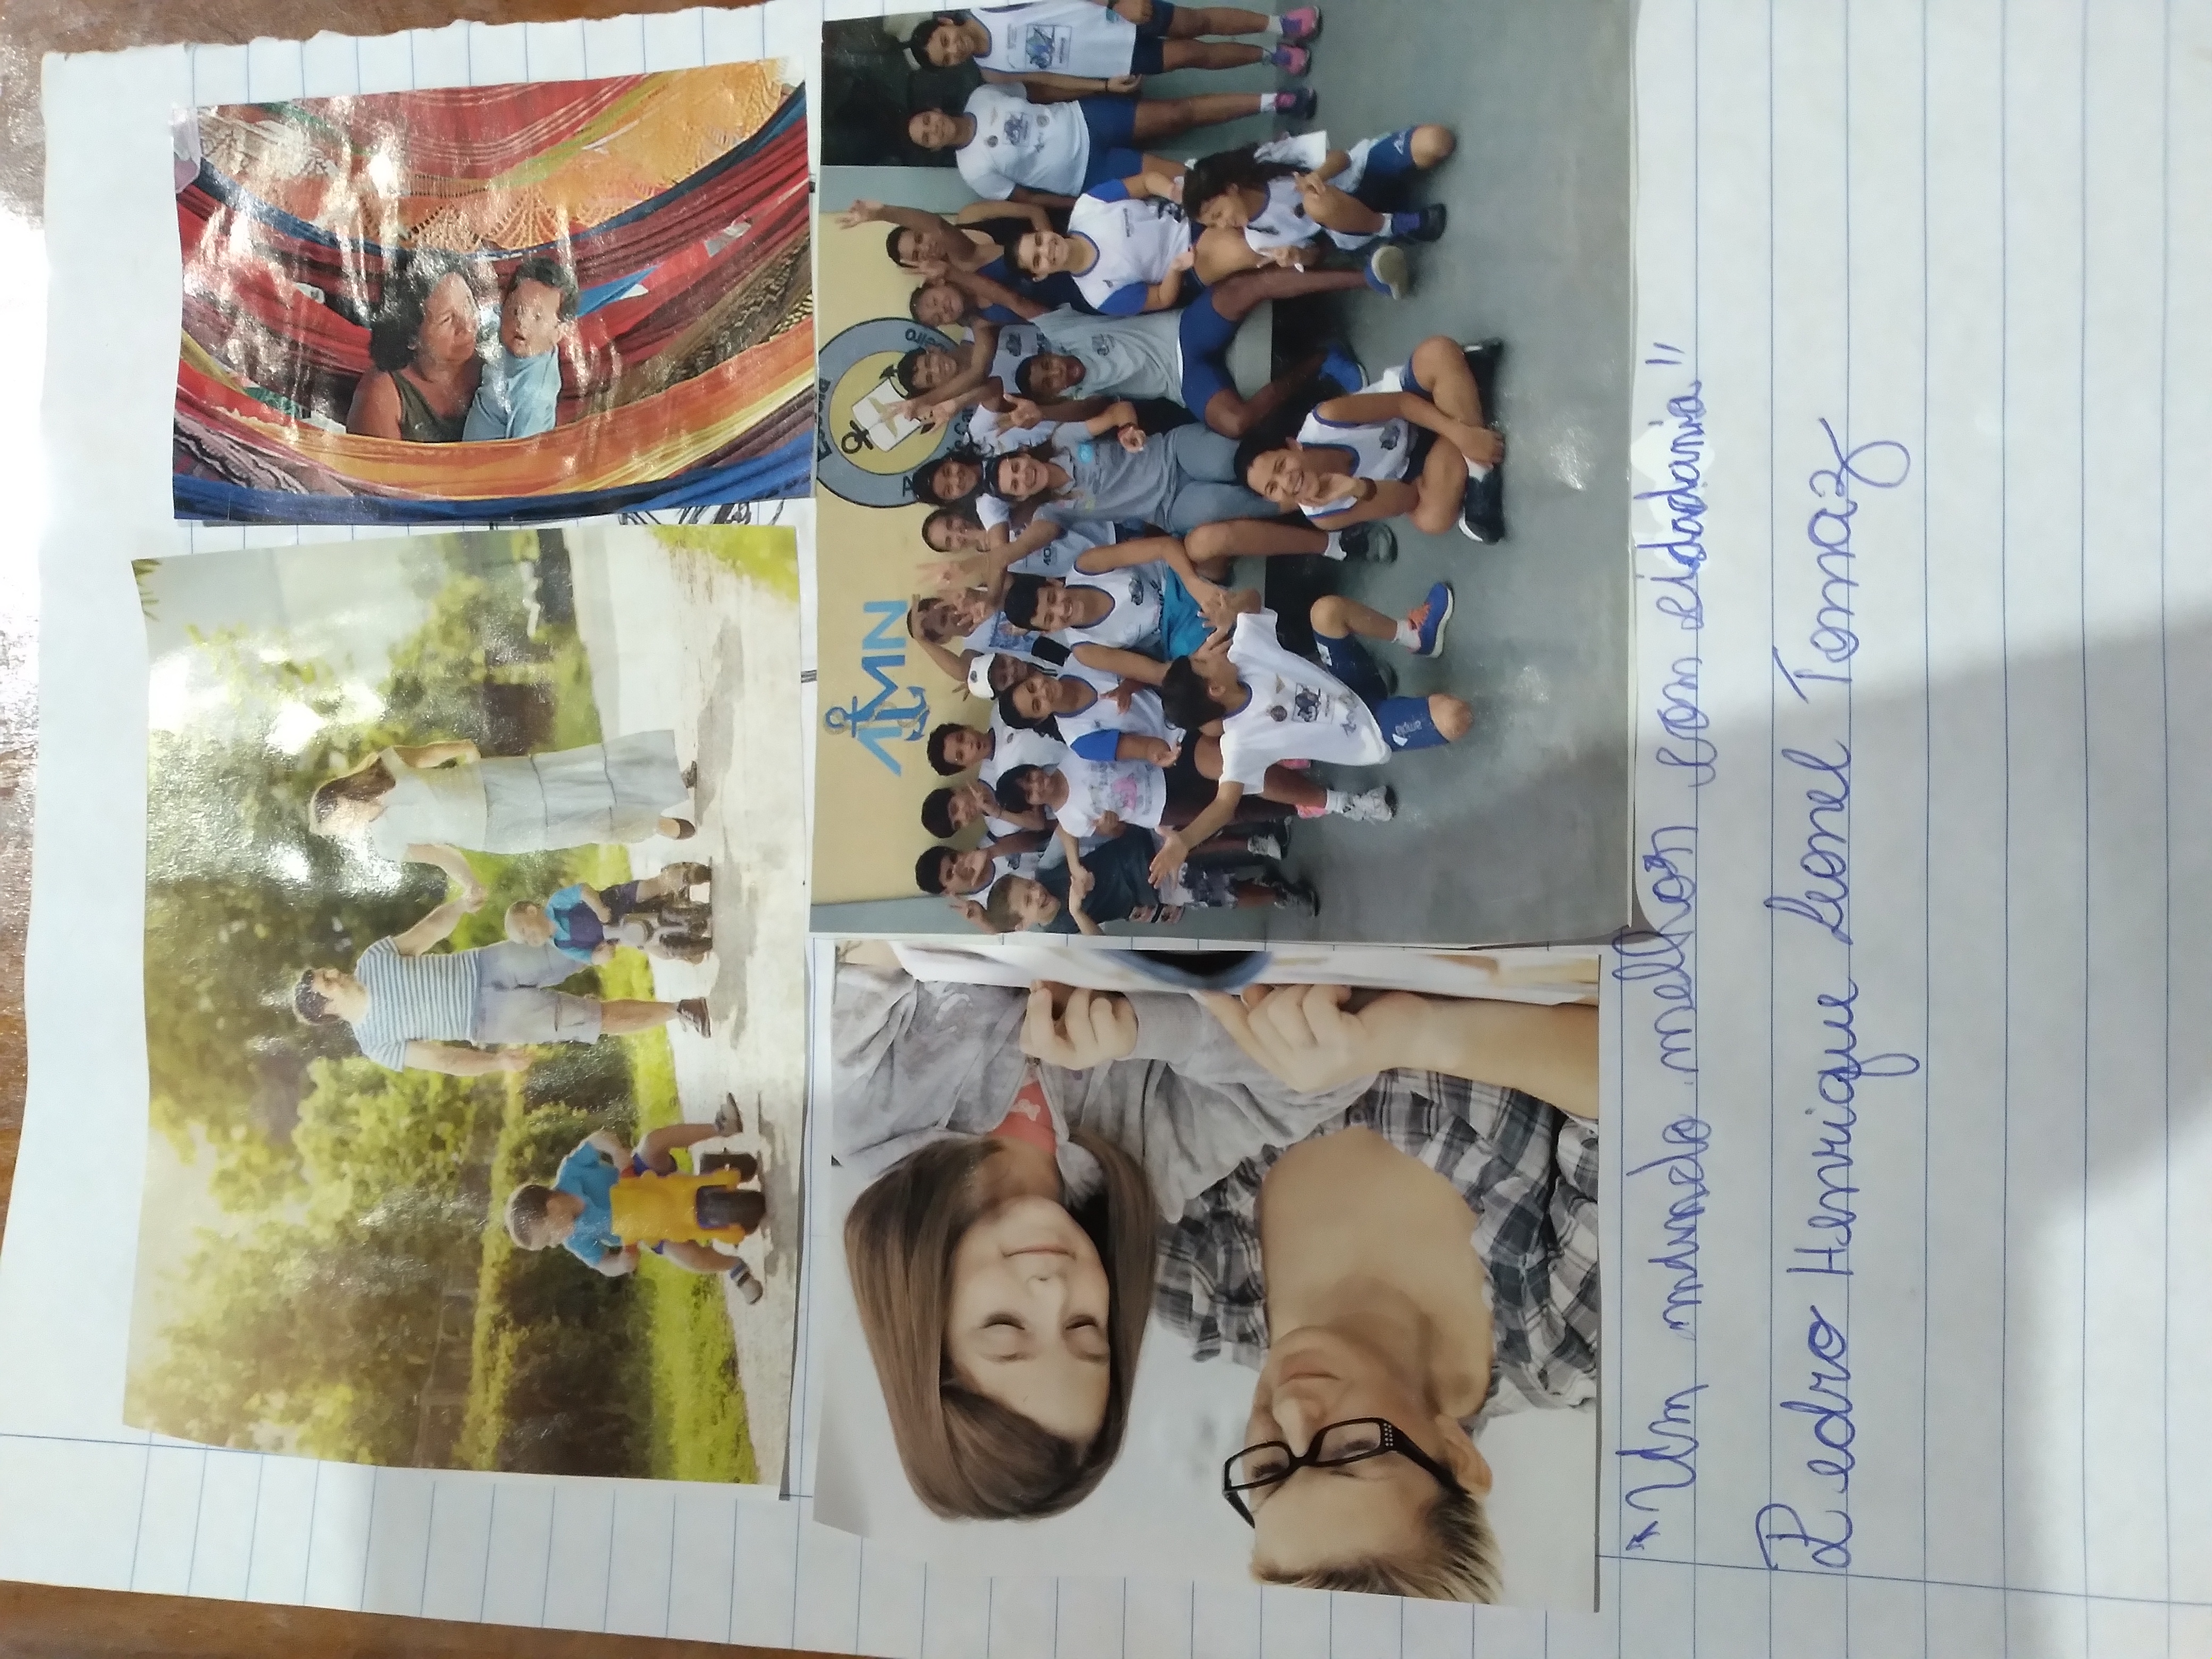 AMN
"Um mundo melhor com cidadania"
Pedro Henrique Leonel Tomaz